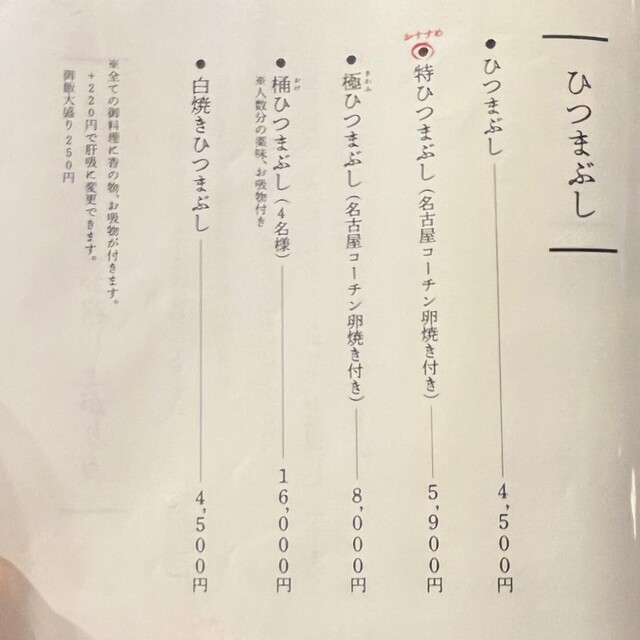 ひつまぶし
ひつまぶし 4,500円
おすすめ
特ひつまぶし(名古屋コーチン卵焼き付き) 5,900円
きわみ
極ひつまぶし(名古屋コーチン卵焼き付き) 8,000円
おけ
桶ひつまぶし(4名様) 16,000円
※人数分の薬味、お吸物付き
白焼きひつまぶし 4,500円
※全ての御料理に香の物、お吸物が付きます。
+220円で肝吸に変更できます。
御飯大盛り250円